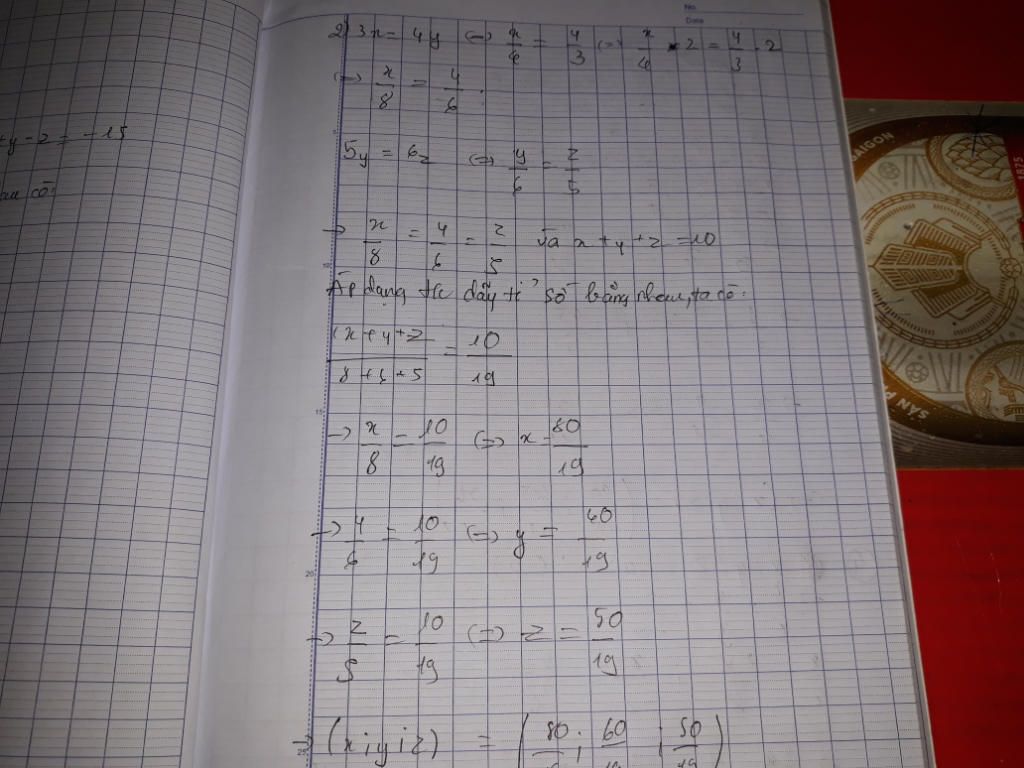 No.
Date
2) 3x = 4y (=) x/4 = y/3 (=) x/4 · 2 = y/3 · 2
(=) x/8 = y/6 .
5y = 6z (=) y/6 = z/5
→ x/8 = y/6 = z/5 và x + y + z = 10
Áp dụng t/c dãy tỉ số bằng nhau, ta có:
x + y + z / 8 + 6 + 5 = 10/19
→ x/8 = 10/19 (=) x = 80/19
→ y/6 = 10/19 (=) y = 60/19
→ z/5 = 10/19 (=) z = 50/19
→ (x;y;z) = (80/19 ; 60/19 ; 50/19)
y - z = -15
có:
SAIGON
1875
SAN P